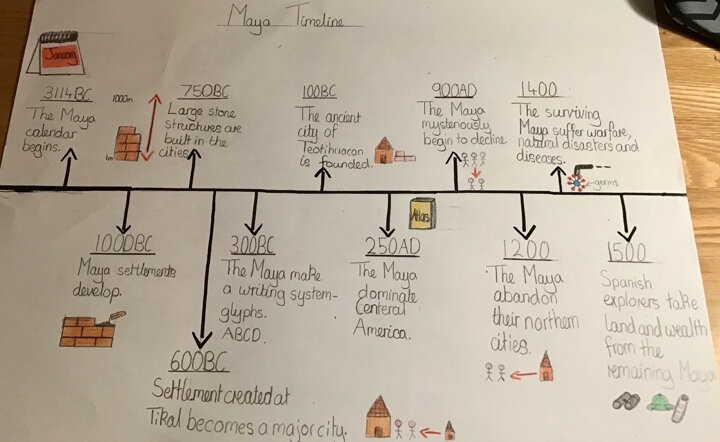 Maya Timeline
January
3114BC
The Maya
calendar
begins.
1000m
1m
750BC
Large stone
structures are
built in the
cities.
100BC
The ancient
city of
Teotihuacan
is founded.
900AD
The Maya
mysteriously
begin to decline.
1400
The surviving
Maya suffer warfare,
natural disasters and
diseases.
germs
Atlas
1000BC
Maya settlements
develop.
600BC
Settlement created at
Tikal becomes a major city.
300BC
The Maya make
a writing system-
glyphs.
ABCD.
250AD
The Maya
dominate
Centeral
America.
1200
The Maya
abandon
their northern
cities.
1500
Spanish
explorers take
land and wealth
from the
remaining Maya